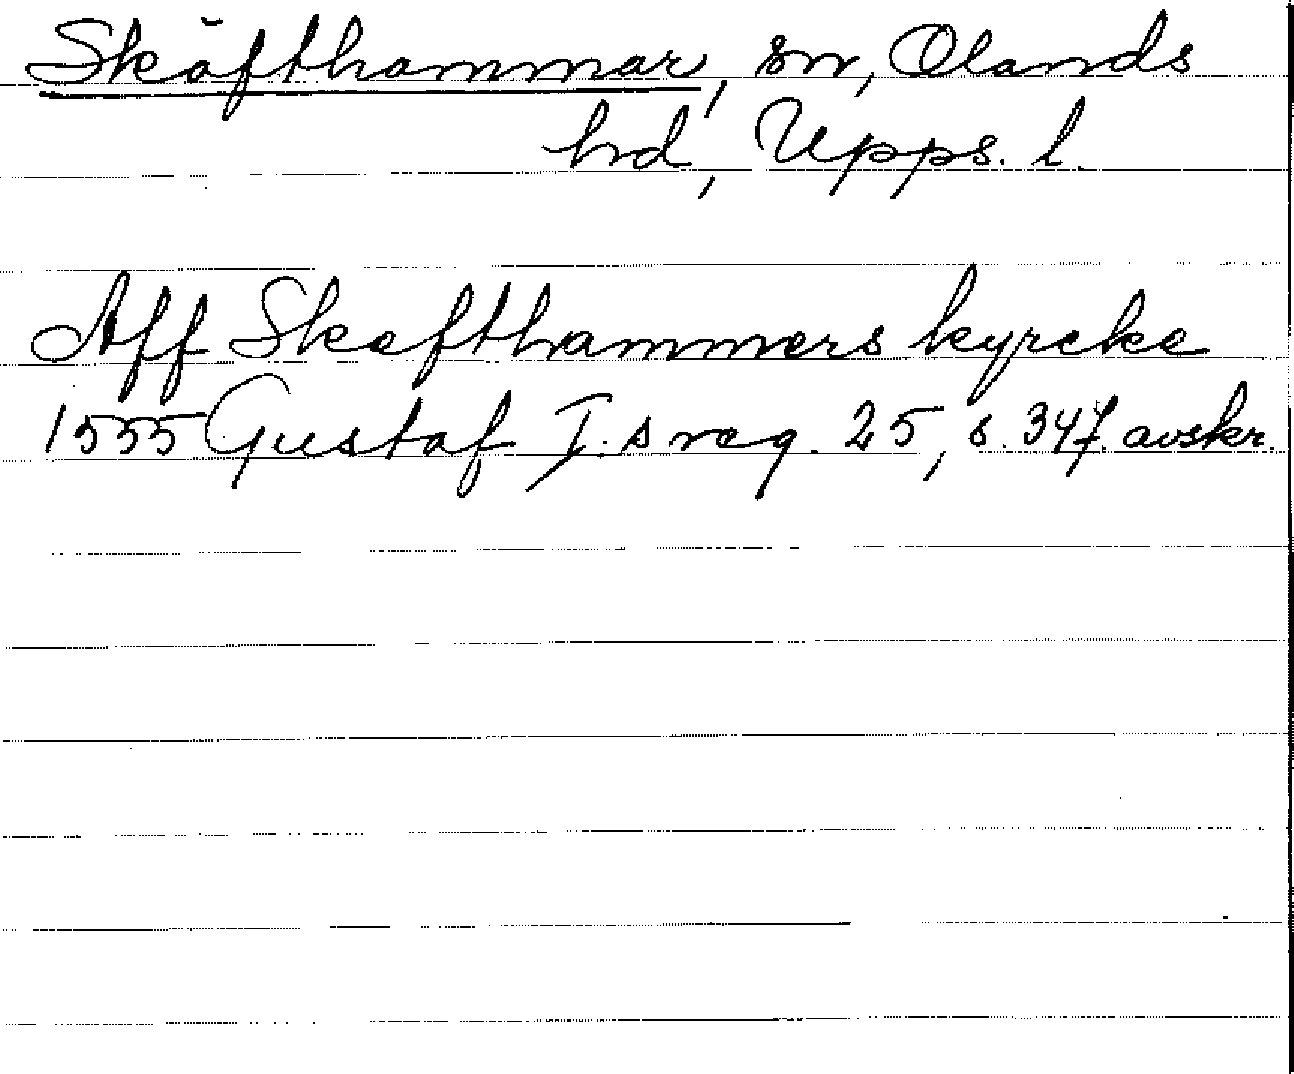 Skäfthammar, sn, Olands
hd, Upps. l.
Aff Skefthammers kyrcke
1555 Gustaf I:s reg. 25, s. 347. avskr.